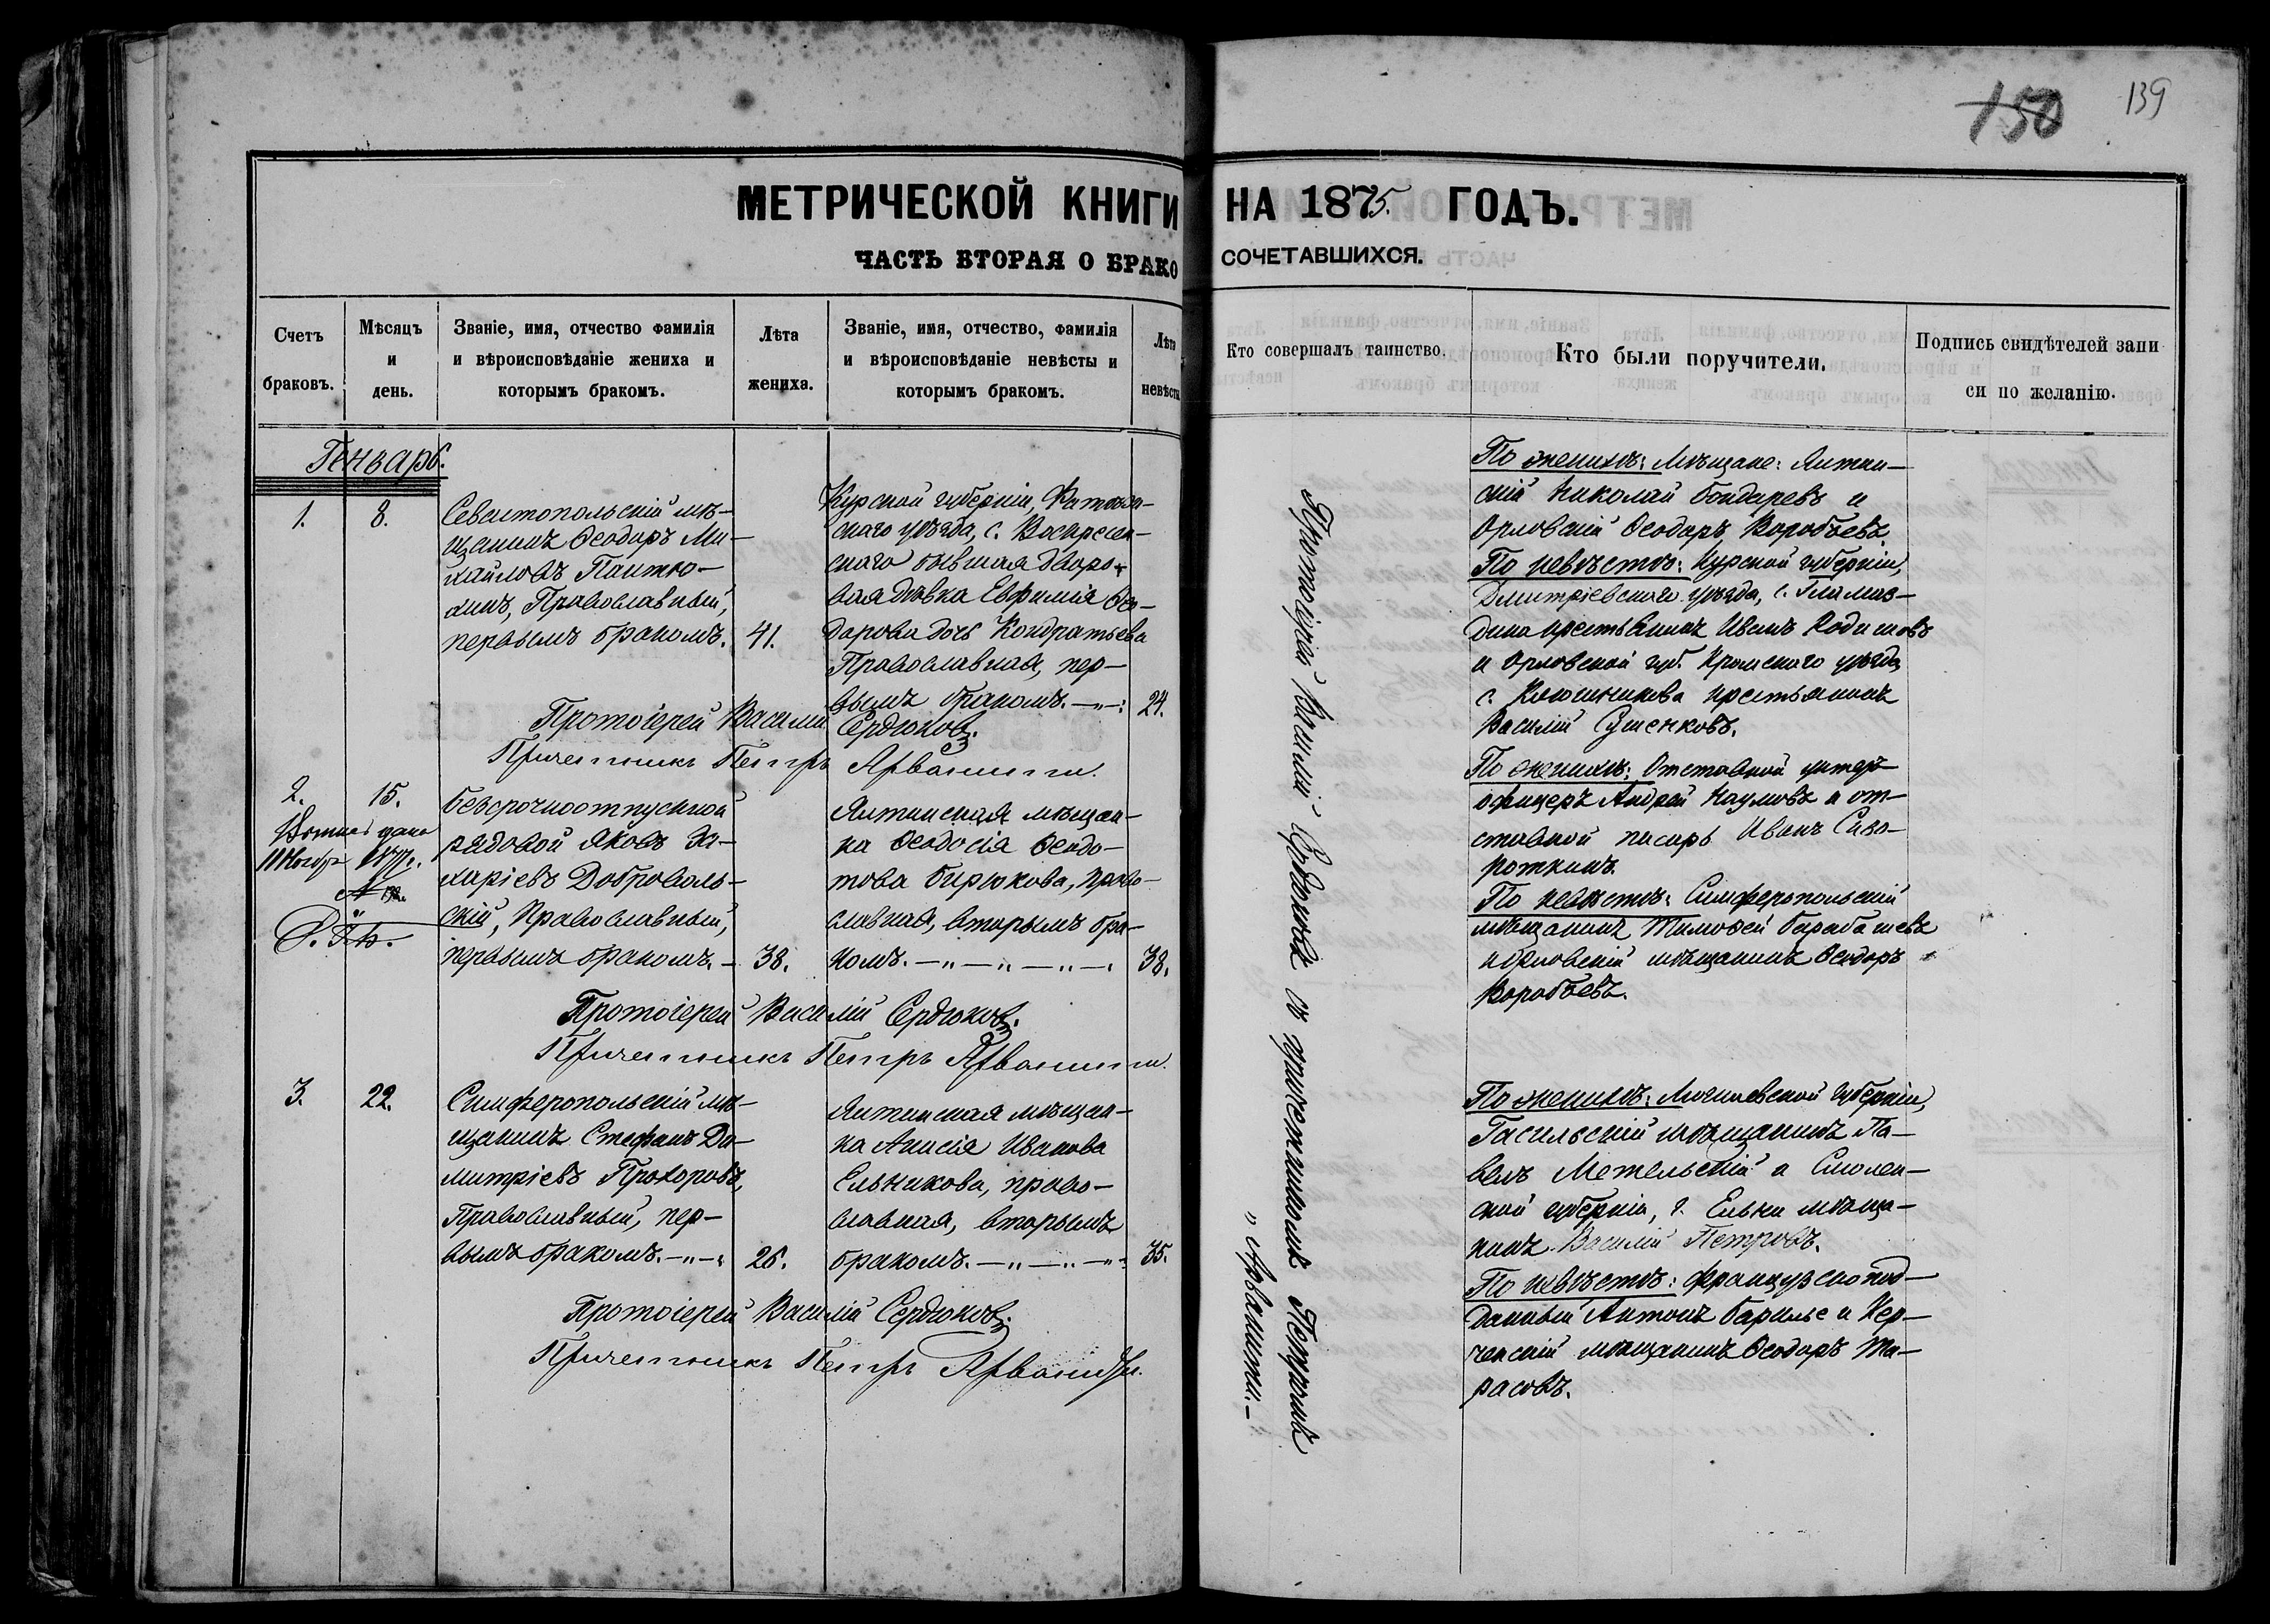 150
139
МЕТРИЧЕСКОЙ КНИГИ НА 1875. ГОДЪ.
ЧАСТЬ ВТОРАЯ О БРАКО СОЧЕТАВШИХСЯ.
Счетъ браковъ.
Мѣсяцъ и день.
Званіе, имя, отчество фамилія
и вѣроисповѣданіе жениха и
которымъ бракомъ.
Лѣта жениха.
Званіе, имя, отчество, фамилія
и вѣроисповѣданіе невѣсты и
которымъ бракомъ.
Лѣта невѣсты
Кто совершалъ таинство.
Кто были поручители.
Подпись свидѣтелей запи
си по желанію.
Генварь.
1.
8.
Севастопольскій мѣ-
щанинъ Ѳеодоръ Ми-
хайловъ Пантю-
хинъ, Православный,
первымъ бракомъ.
41.
Курской губерніи, Фатеж-
скаго уѣзда, с. Воскресен-
скаго бывшая дворо-
вая дѣвка Евфимія Ѳео-
дорова дочь Кондратьева
Православная, пер-
вымъ бракомъ. —„—
24.
Протоіерей Василій Сердюковъ.
Причетникъ Петръ Арванити.
По женихѣ: Мѣщане: Ялтин-
скій Николай Бондаревъ и
Орловскій Ѳеодоръ Воробьевъ.
По невѣстѣ: Курской губерніи,
Дмитріевскаго уѣзда, с.
дина крестьянинъ Иванъ Кодимовъ
и Орловской губ. Кромскаго уѣзда
с. крестьянинъ
Василій Сушенковъ.
2.
15.
11 Ноябр
Безсрочноотпускной
рядовой Яковъ За-
харіевъ Доброволь-
скій, Православный,
первымъ бракомъ. -
38.
Ялтинская мѣщан-
ка Ѳеодосія Ѳеодо-
това Бирюкова, право-
славная, вторымъ бра-
комъ. —„—„—„—
38.
Протоіерей Василій Сердюковъ.
Причетникъ Петръ Арванити.
По женихѣ: Отставной унтеръ-
офицеръ Андрей Наумовъ и от-
ставной писарь Иванъ Сыво-
роткинъ.
По невѣстѣ: Симферопольскій
мѣщанинъ Тимоѳей Барабашевъ
и Орловскій мѣщанинъ Ѳеодоръ
Воробьевъ.
3.
22.
Симферопольскій мѣ-
щанинъ Стефанъ Ди-
митріевъ Прохоровъ,
Православный, пер-
вымъ бракомъ. —„—
26.
Ялтинская мѣщан-
ка Анисія Иванова
Ельникова, право-
славная, вторымъ
бракомъ. —„—„—„
35.
Протоіерей Василій Сердюковъ.
Причетникъ Петръ Арванити.
По женихѣ: Могилевской губерніи,
мѣщанинъ Па-
велъ Метельскій и Смолен-
ской губерніи, г. Ельни мѣща-
нинъ Василій Петровъ.
По невѣстѣ: Французско под-
данный Антонъ Барилье и Кер-
ченскій мѣщанинъ Ѳеодоръ Та-
расовъ.
Протоіерей Василій Сердюковъ съ причетникомъ Петромъ
„ Арванити.-